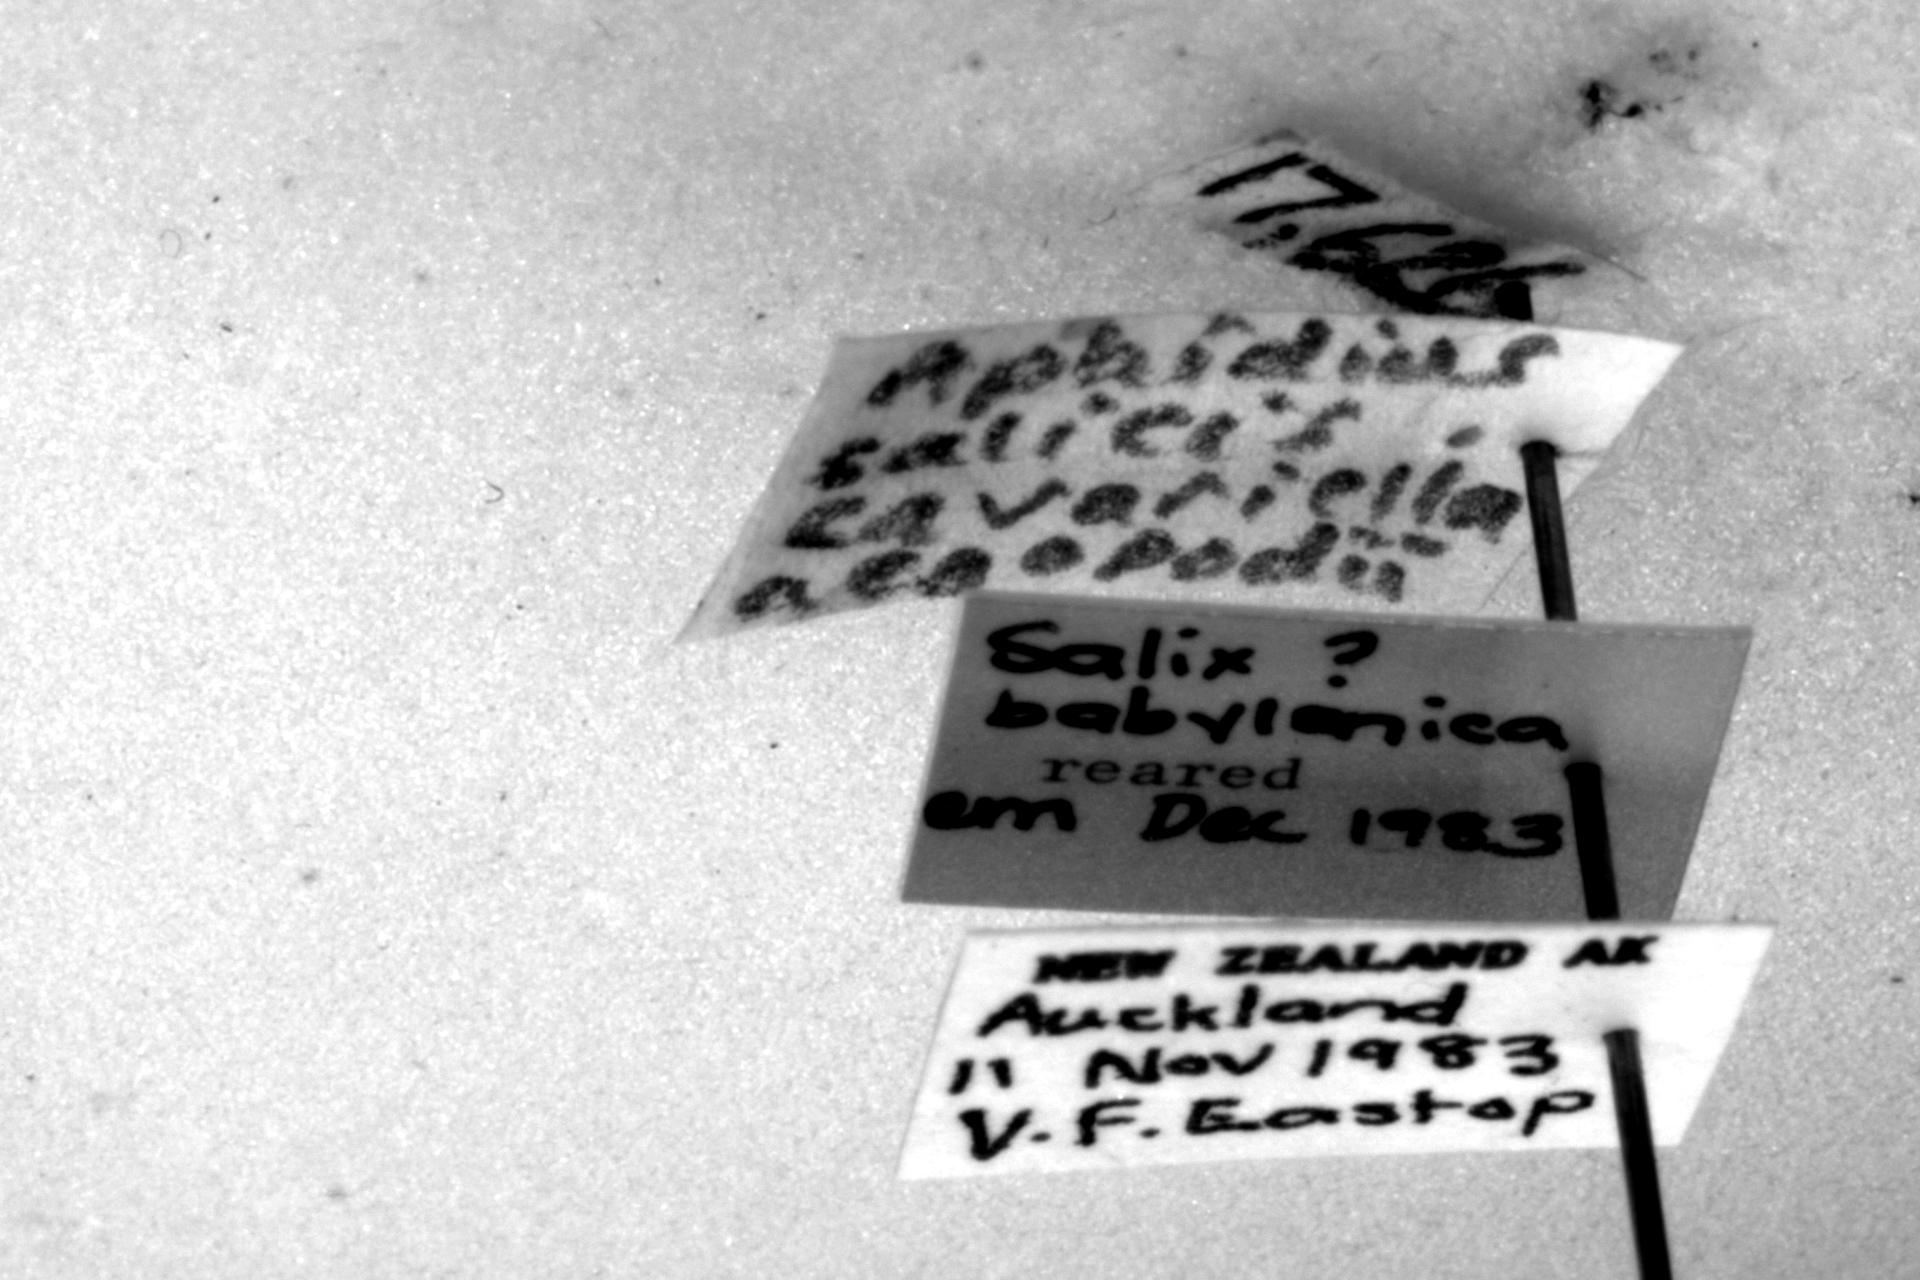 Aphidius
salicis
cavariella
aegopodii
Salix ?
babylonica
reared
em Dec 1983
NEW ZEALAND AK
Auckland
11 Nov 1983
V.F. Eastop